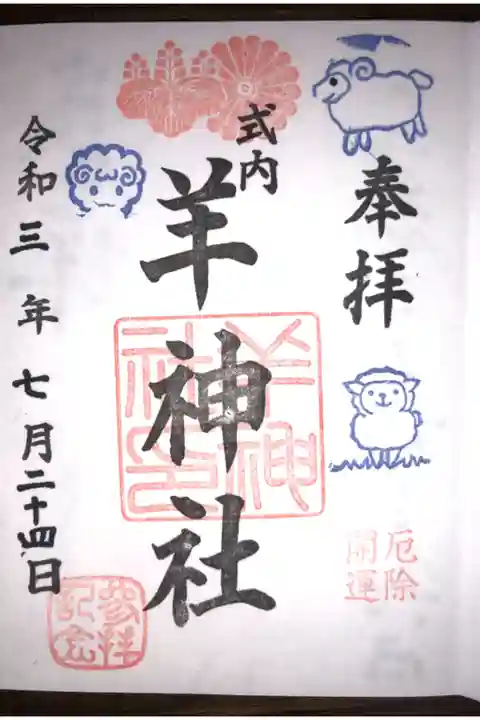 奉拝
厄除
開運
式内
羊神社
羊神社印
令和三年七月二十四日
参拝記念